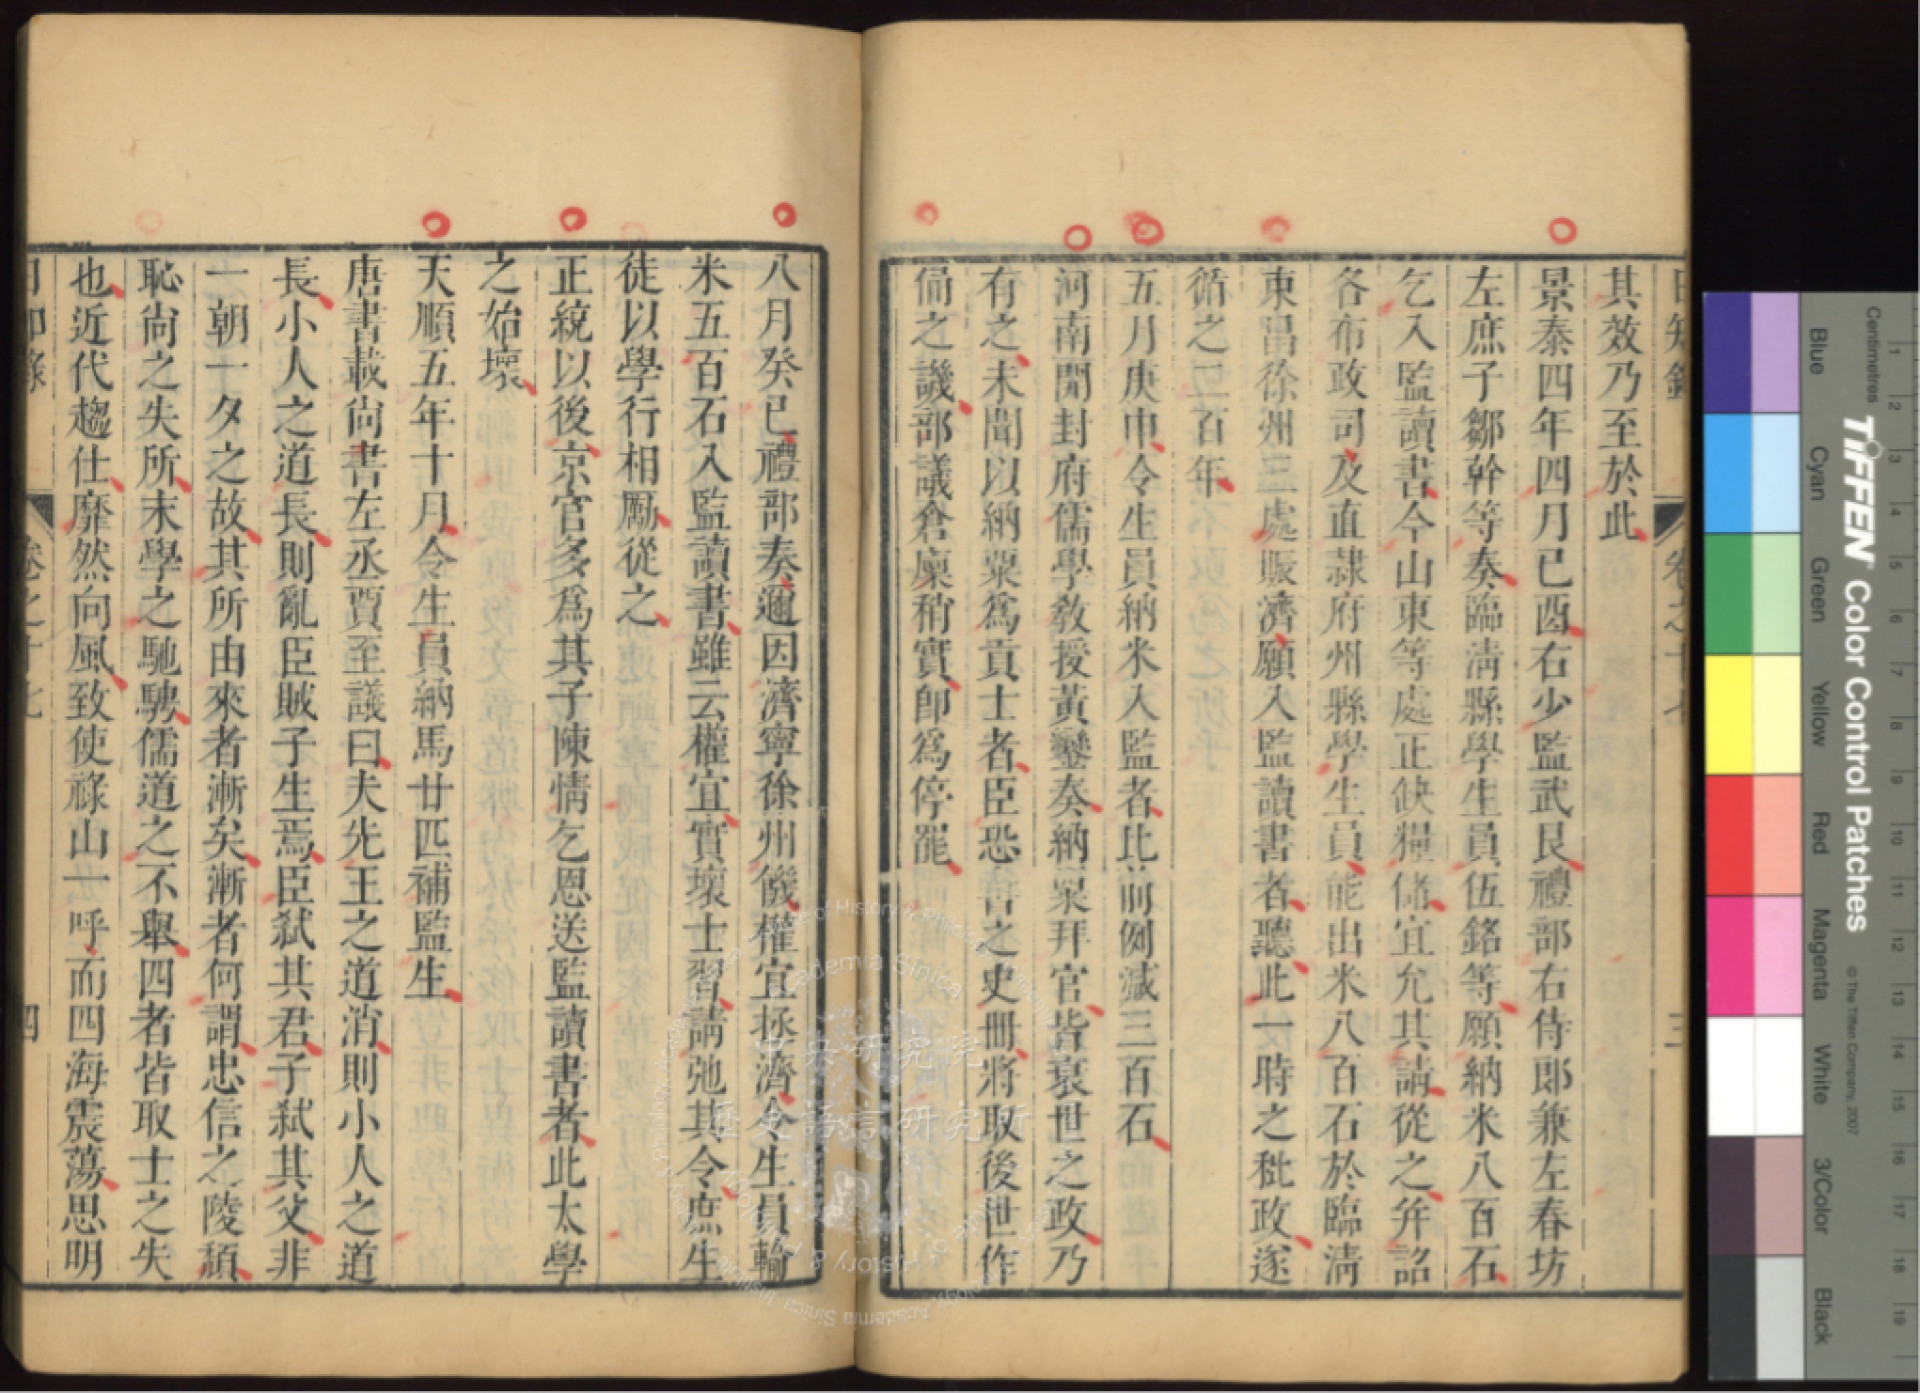 日知錄 卷之十七 三
其效乃至於此
景泰四年四月己酉右少監武艮禮部右侍郎兼左春坊
左庶子鄒幹等奏臨清縣學生員伍銘等願納米八百石
乞入監讀書今山東等處正缺糧儲宜允其請從之并詔
各布政司及直隷府州縣學生員能出米八百石於臨清
東昌徐州三處賑濟願入監讀書者聽此一時之秕政遂
循之二百年
五月庚申令生員納米入監者比前例減三百石
河南開封府儒學教授黃鑾奏納粟拜官皆衰世之政乃
有之未聞以納粟爲貢士者臣恐書之史冊將取後世作
俑之譏部議倉廩稍實即爲停罷
八月癸巳禮部奏邇因濟寧徐州饑權宜拯濟令生員輸
米五百石入監讀書雖云權宜實壞士習請弛其令庶生
徒以學行相勵從之
正統以後京官多爲其子陳情乞恩送監讀書者此太學
之始壞
天順五年十月令生員納馬廿匹補監生
唐書載尙書左丞賈至議曰夫先王之道消則小人之道
長小人之道長則亂臣賊子生焉臣弒其君子弒其父非
一朝一夕之故其所由來者漸矣漸者何謂忠信之陵頽
恥尙之失所末學之馳騁儒道之不舉四者皆取士之失
也近代趨仕靡然向風致使祿山一呼而四海震蕩思明
日知錄 卷之十七 四
中央研究院
歷史語言研究所
Institute of History & Philology, Academia Sinica
Centimetres
TIFFEN Color Control Patches
© The Tiffen Company, 2007
Blue Cyan Green Yellow Red Magenta White 3/Color Black
1 2 3 4 5 6 7 8 9 10 11 12 13 14 15 16 17 18 19